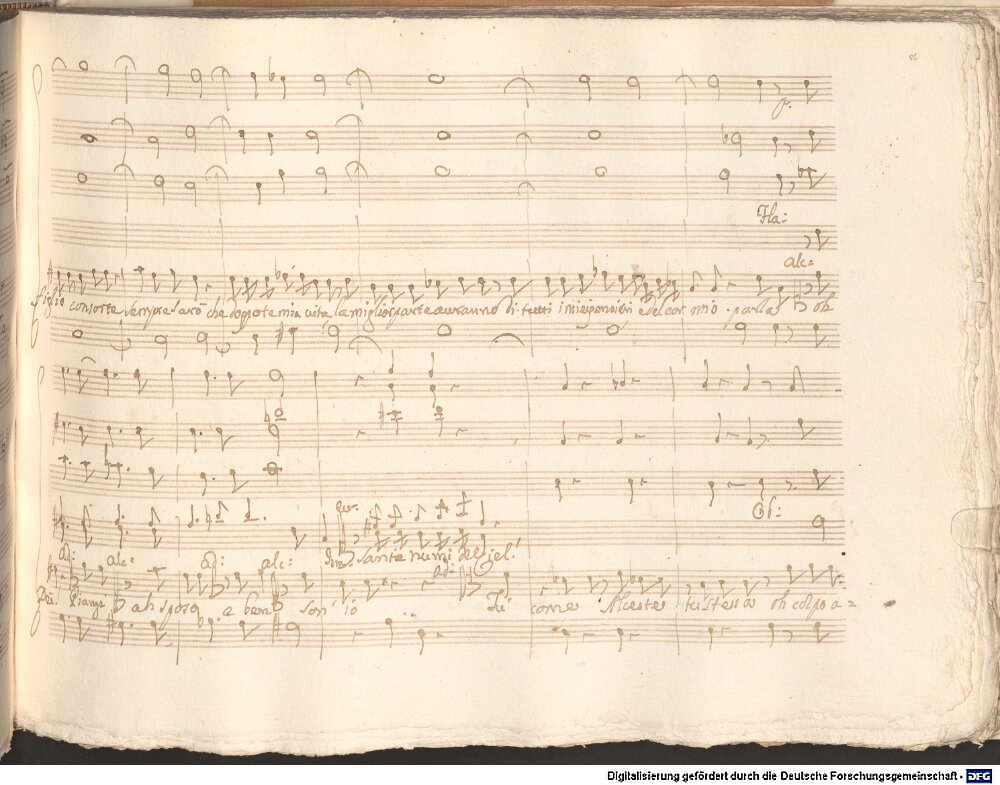 86
p.
Fla:
alc:
figlio consorte sempre sarò che doppo te mia cuita la miglior parte auranno di tutti i miei pensieri e del cor mio. parla oh
Ob:
ad: alc: ad: alc: ism. Santi numi del ciel!
ad:
Piangi ah sposo e ben son' io Tù come Alceste tù stessa oh colpo a=
Digitalisierung gefördert durch die Deutsche Forschungsgemeinschaft - DFG